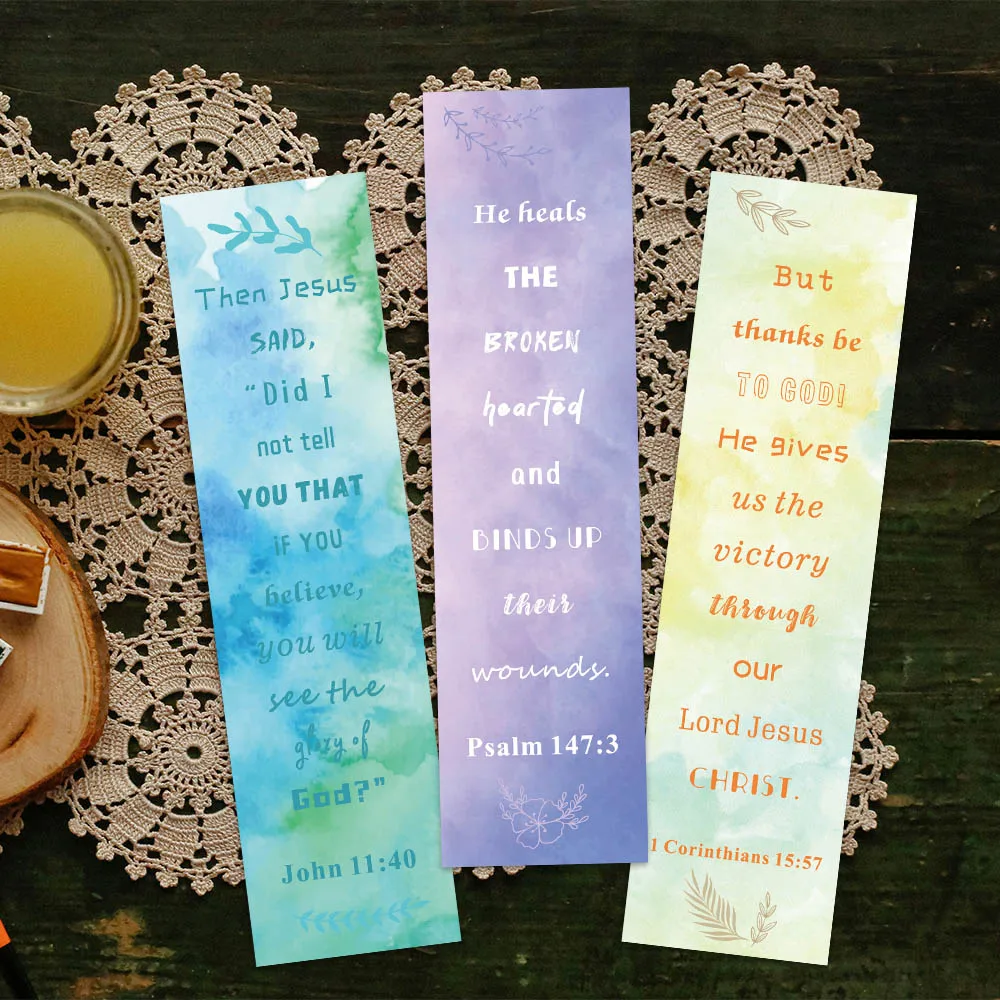 Then Jesus
SAID,
"Did I
not tell
YOU THAT
iF YOU
believe,
you will
see the
glory of
God?"
John 11:40
He heals
THE
BROKEN
hearted
and
BINDS UP
their
wounds.
Psalm 147:3
But
thanks be
TO GOD!
He gives
us the
victory
through
our
Lord Jesus
CHRIST.
1 Corinthians 15:57